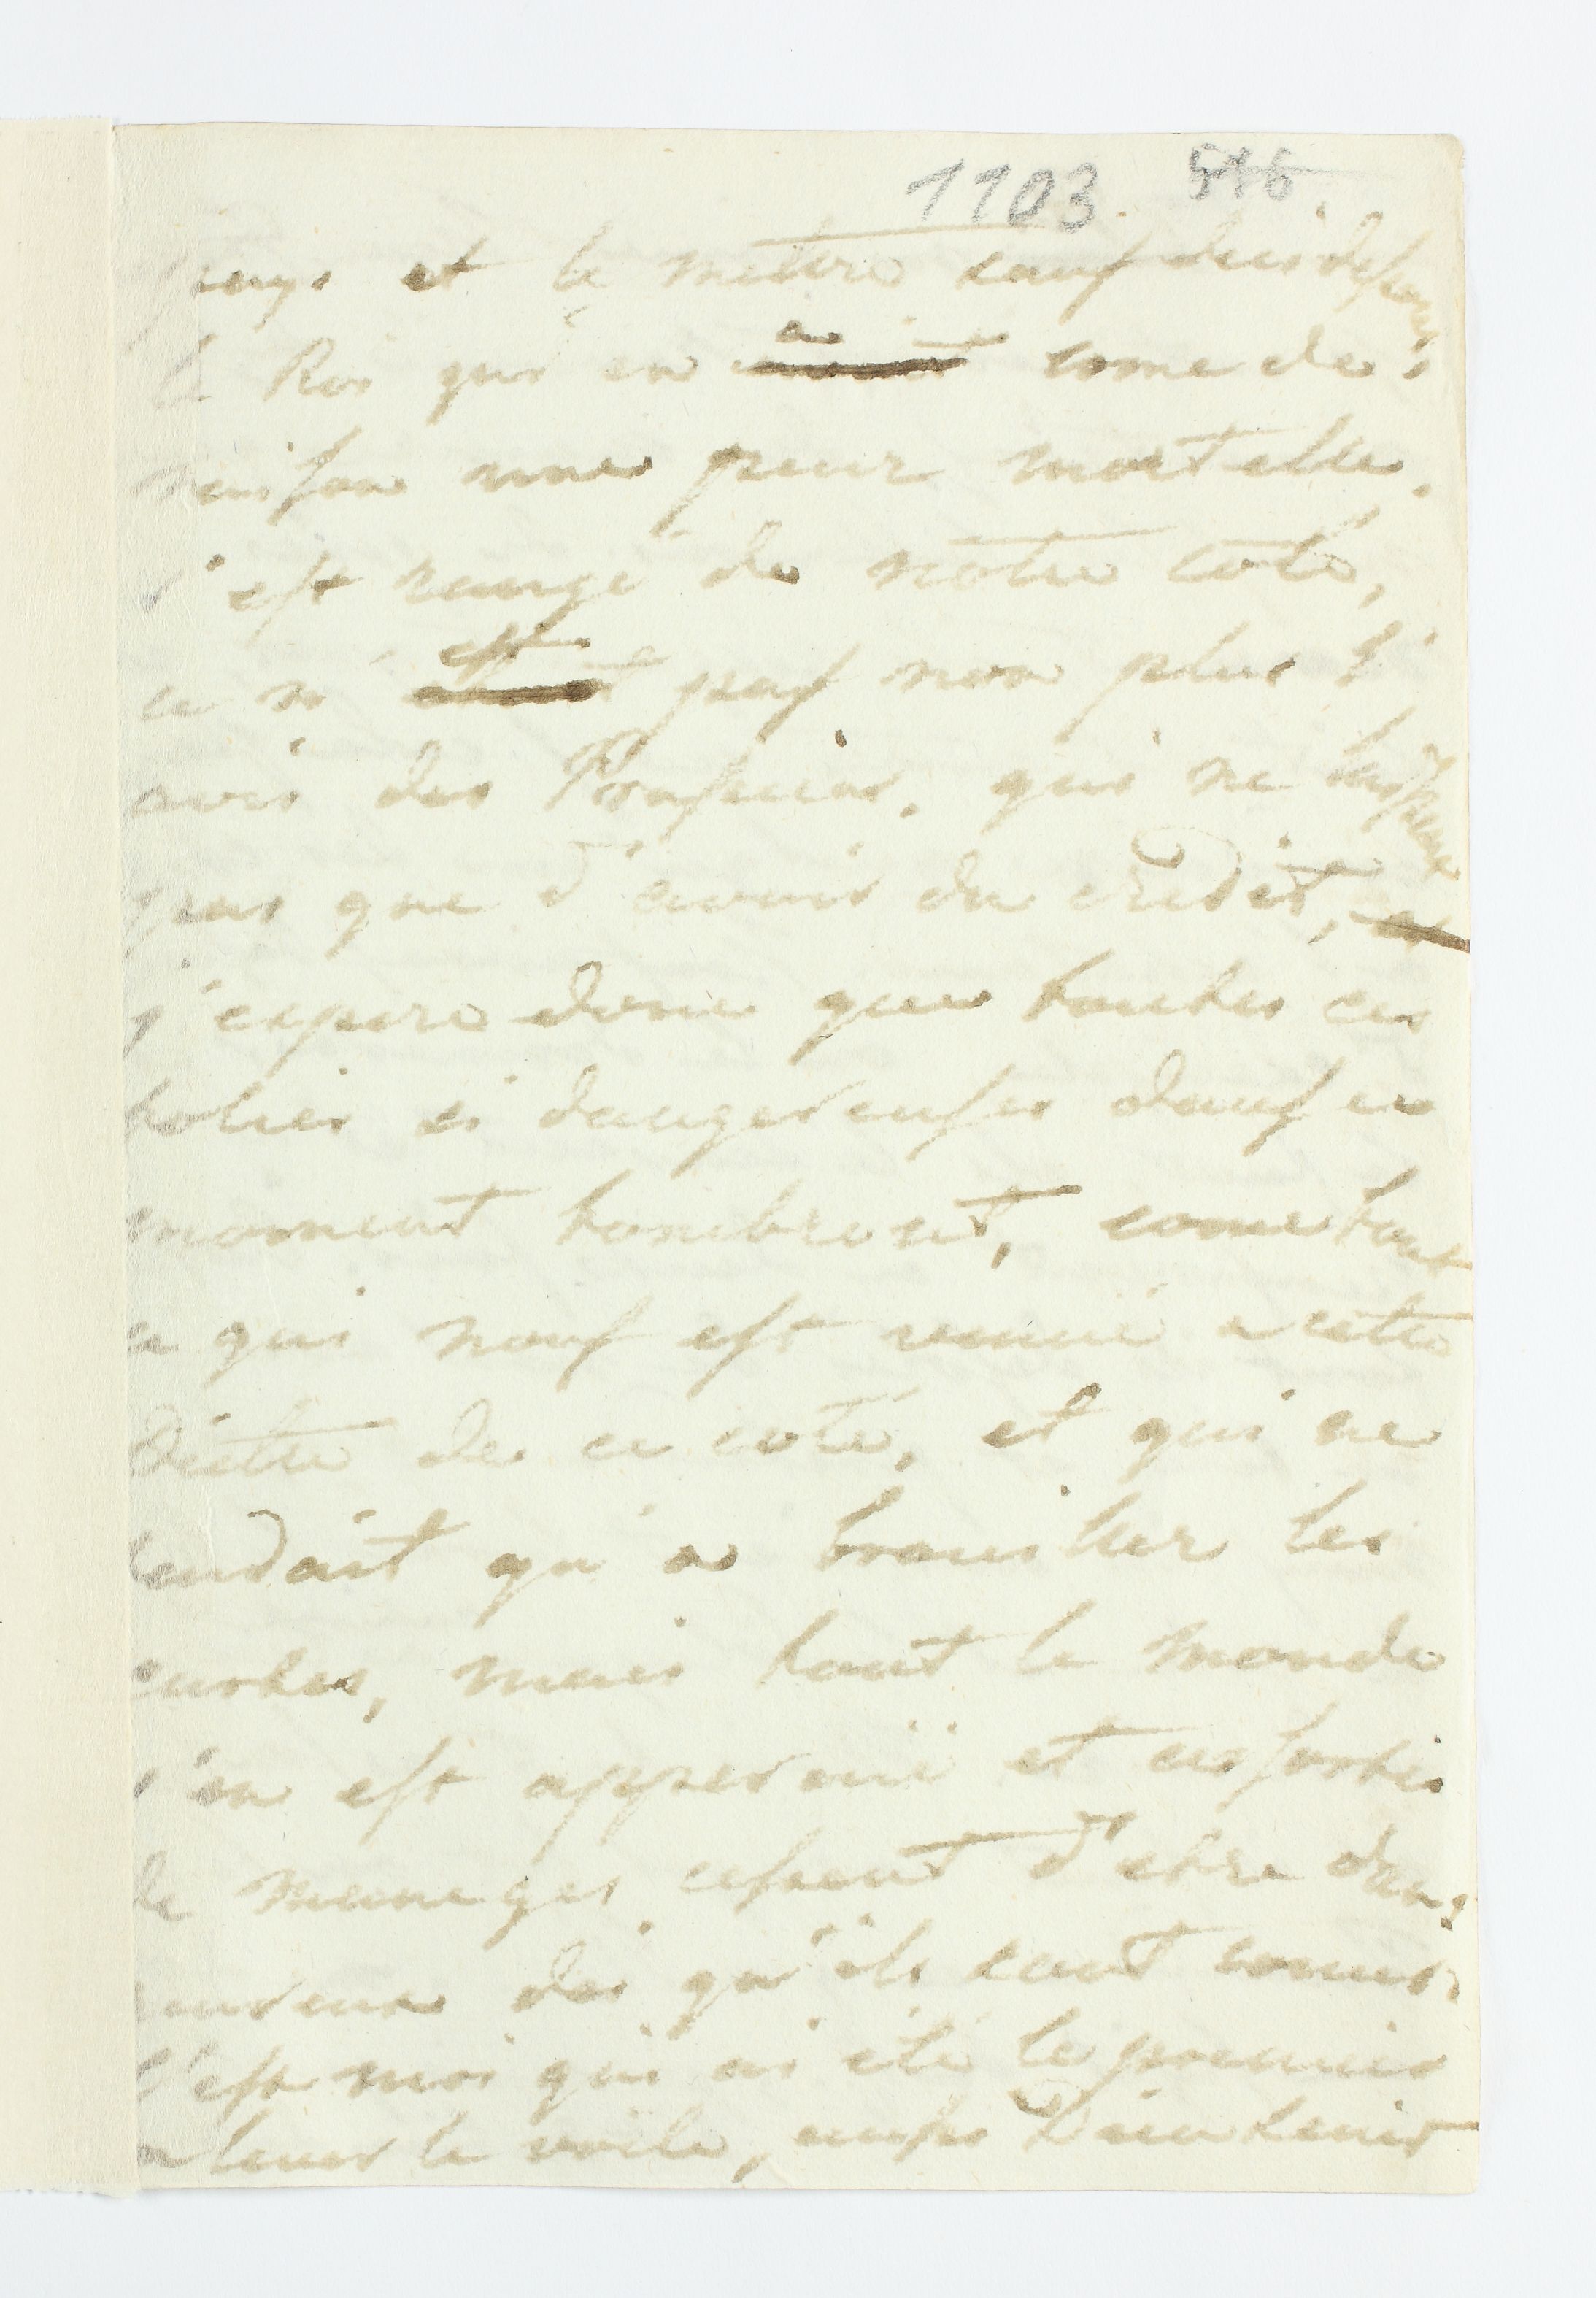 1103. 516.
pays et le mettre sauf dessus dessous
le Roi qui en a come de
raison une peur mortelle,
s'est rangé de notre coté,
ce n'est pas non plus l'
avis des Prussiens, qui ne
pas que d'avoir du credit,
j'espere donc que toutes ces
folies si dangereuses dans ce
moment tomberont, come tout
ce qui nous est venuë a cette
Diette de ce coté, et qui ne
tendait qu'a brouiller les
cartes, mais tout le monde
s'en est apperçuë et ces sortes
de meneges cessent d'etre dan:
gereux des qu'ils sont connus.
c'est moi qui ai été le premier
a lever le voile, aussi Dieu